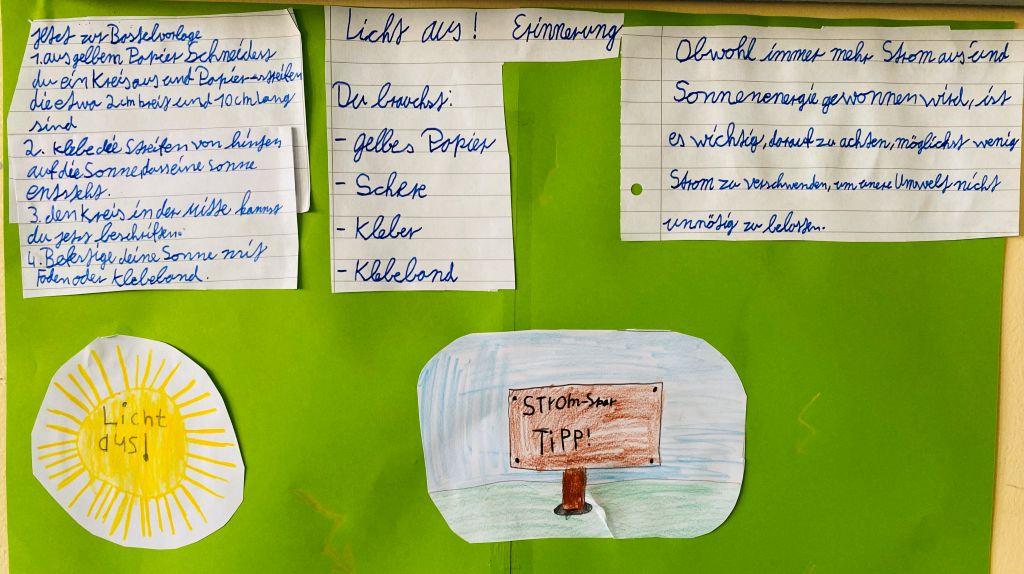 Jetzt zur Bastelvorlage
1. aus gelbem Papier Schneidest
du ein Kreis aus und Papierstreifen
die etwa 2 cm breit und 10 cm lang
sind
2. Klebe die Streifen von hinten
auf die Sonne dass eine Sonne
entsteht.
3. den Kreis in der Mitte kannst
du jetzt beschriften.
4. Befestige deine Sonne mit
Faden oder Klebeband.
Licht aus! Erinnerung
Du brauchst:
- gelbes Papier
- Schere
- Kleber
- Klebeband
Obwohl immer mehr Strom aus und
Sonnenenergie gewonnen wird, ist
es wichtig, darauf zu achten, möglichst wenig
Strom zu verschwenden, um unere Umwelt nicht
unnötig zu belasten.
Licht
aus!
Strom-Spar
TiPP!